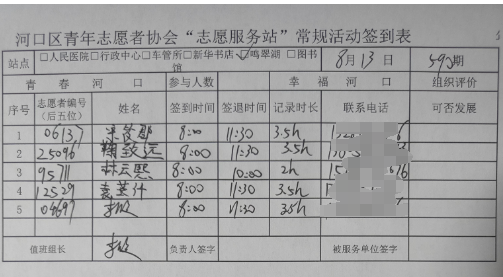 河口区青年志愿者协会“志愿服务站”常规活动签到表
站点 □人民医院□行政中心□车管所□新华书店☑鸣翠湖 □图书馆 8月13日 期
青春河口 参与人数 幸福河口 组织评价
序号 志愿者编号(后五位) 姓名 签到时间 签退时间 记录时长 联系电话 可否发展
1 06137 8:00 11:30 3.5h
2 25096 8:00 11:30 3.5h
3 95711 林云熙 8:00 10:00 2h
4 12529 8:00 11:30 3.5h
5 04697 8:00 11:30 3.5h
值班组长 负责人签字 被服务单位签字